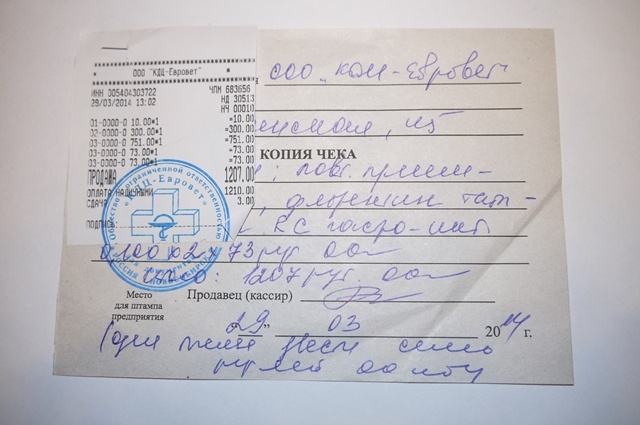 ООО "КДЦ-Евровет"
ИНН 005404303722
ЧПМ 683656
29/03/2014 13:02
НД 30513
НЧ 00010
01-0000-0 10.00*1
=10.00
02-0000-0 300.00*1
=300.00
03-0000-0 751.00*1
=751.00
03-0000-0 73.00*1
=73.00
03-0000-0 73.00*1
=73.00
ПРОДАЖА
1207.00
ОПЛАТА НАЛИЧНЫМИ
1210.00
СДАЧА
3.00
ООО "КДЦ-Евровет"
КОПИЯ ЧЕКА
2 х 73 руг 00
1207 руг. 00
Общество с ограниченной ответственностью
"КДЦ-Евровет"
Место
для штампа
предприятия
Продавец (кассир)
29" 03 2014 г.
(один тыс. двести семь
рублей 00 коп)